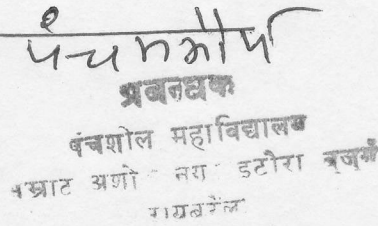 पंचम मौर्य
प्रबन्धक
पंचशील महाविद्यालय
सम्राट अशो नगर इटौरा बुजुर्ग
रायबरेली